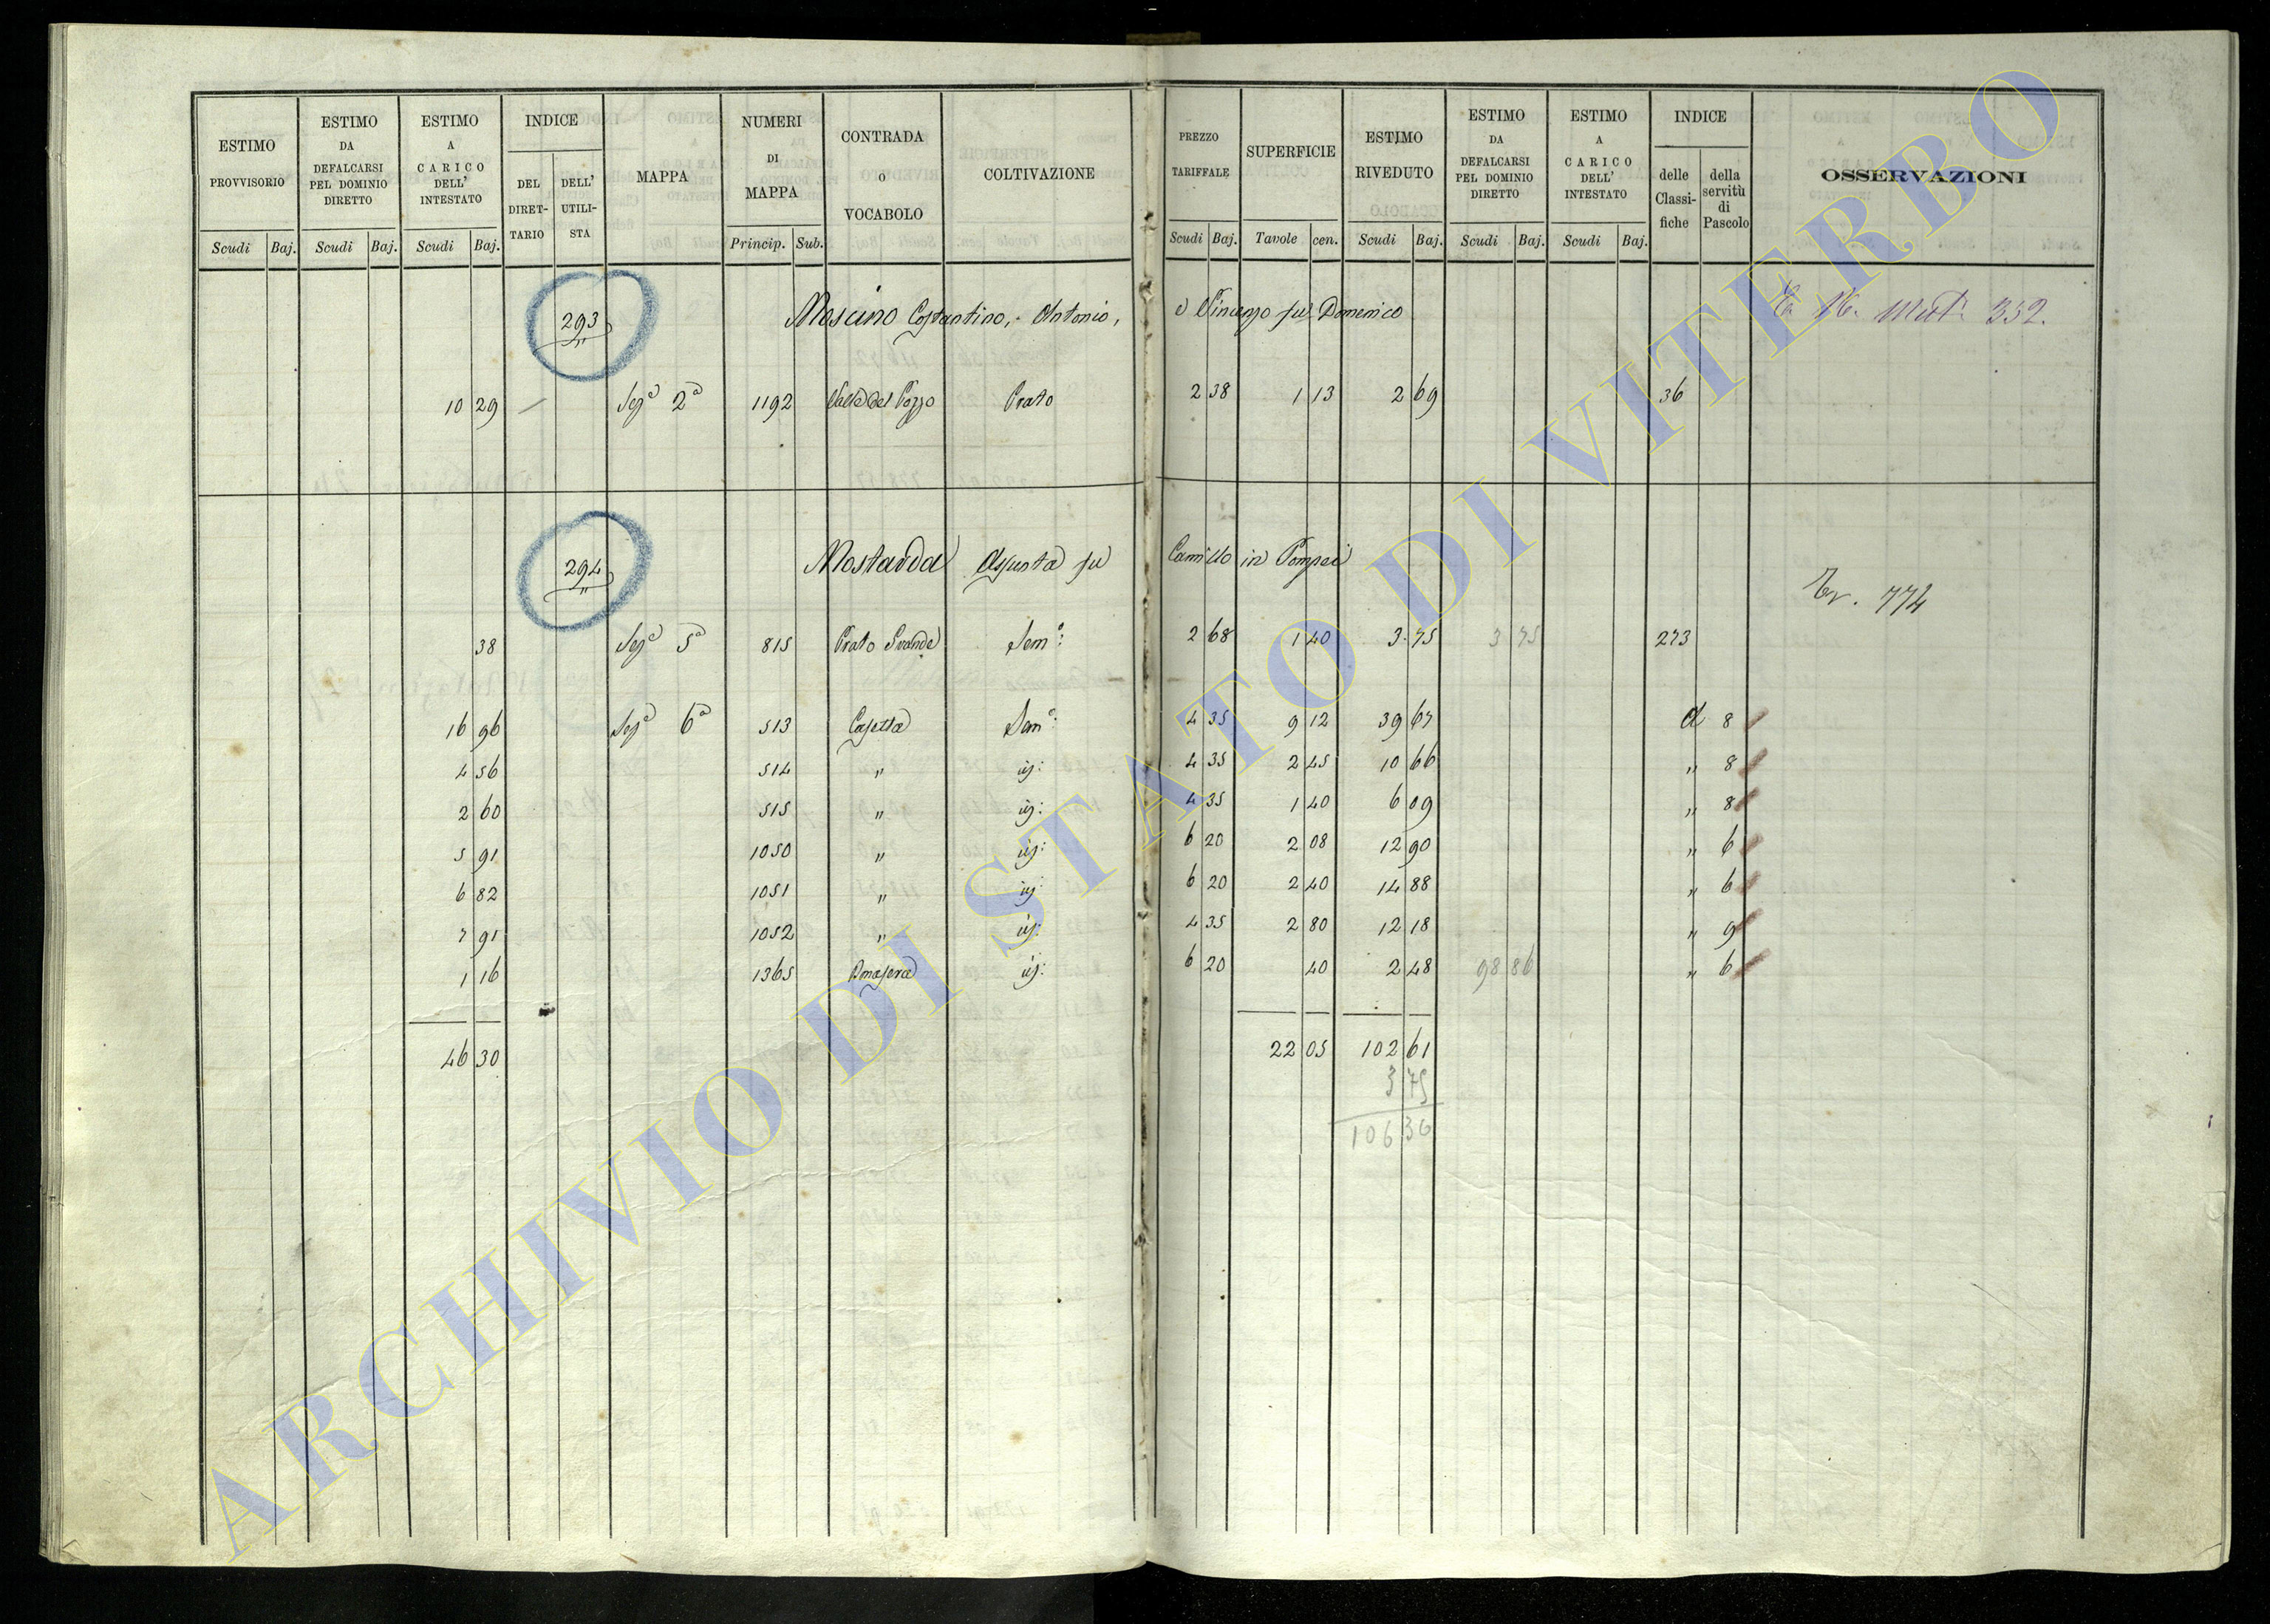 ESTIMO PROVVISORIO | ESTIMO DA DEFALCARSI PEL DOMINIO DIRETTO | ESTIMO A CARICO DELL' INTESTATO | INDICE | MAPPA | NUMERI DI MAPPA | CONTRADA O VOCABOLO | COLTIVAZIONE | PREZZO TARIFFALE | SUPERFICIE | ESTIMO RIVEDUTO | ESTIMO DA DEFALCARSI PEL DOMINIO DIRETTO | ESTIMO A CARICO DELL' INTESTATO | INDICE | OSSERVAZIONI
DEL DIRETTARIO | DELL' UTILISTA | delle Classifiche | della servitù di Pascolo
Scudi | Baj. | Scudi | Baj. | Scudi | Baj. | Princip. | Sub. | Scudi | Baj. | Tavole | cen. | Scudi | Baj. | Scudi | Baj. | Scudi | Baj.
293 Moscino Costantino, Antonio, e Vincenzo fu Domenico 16. Mut. 352.
10 29 Sez.a 2a 1192 Valle del Pozzo Prato 2 38 1 13 2 69 36
294 Mostarda Assunta fu Camillo in Pompei
774
38 Sez.a 5a 815 Prato Grande Sem.o: 2 68 1 40 3 75 3 75 273
16 96 Sez.a 6a 513 Casetta Sem.o: 4 35 9 12 39 67 A 8
4 56 514 " 4 35 2 45 10 66 " 8
2 60 515 " 4 35 1 40 6 09 " 8
5 91 1050 " 6 20 2 08 12 90 " 6
6 82 1051 " 6 20 2 40 14 88 " 6
7 91 1052 " 4 35 2 80 12 18 " 9
1 16 1365 6 20 40 2 48 98 86 " 6
46 30 22 05 102 61
3 75
106 36
ARCHIVIO DI STATO DI VITERBO